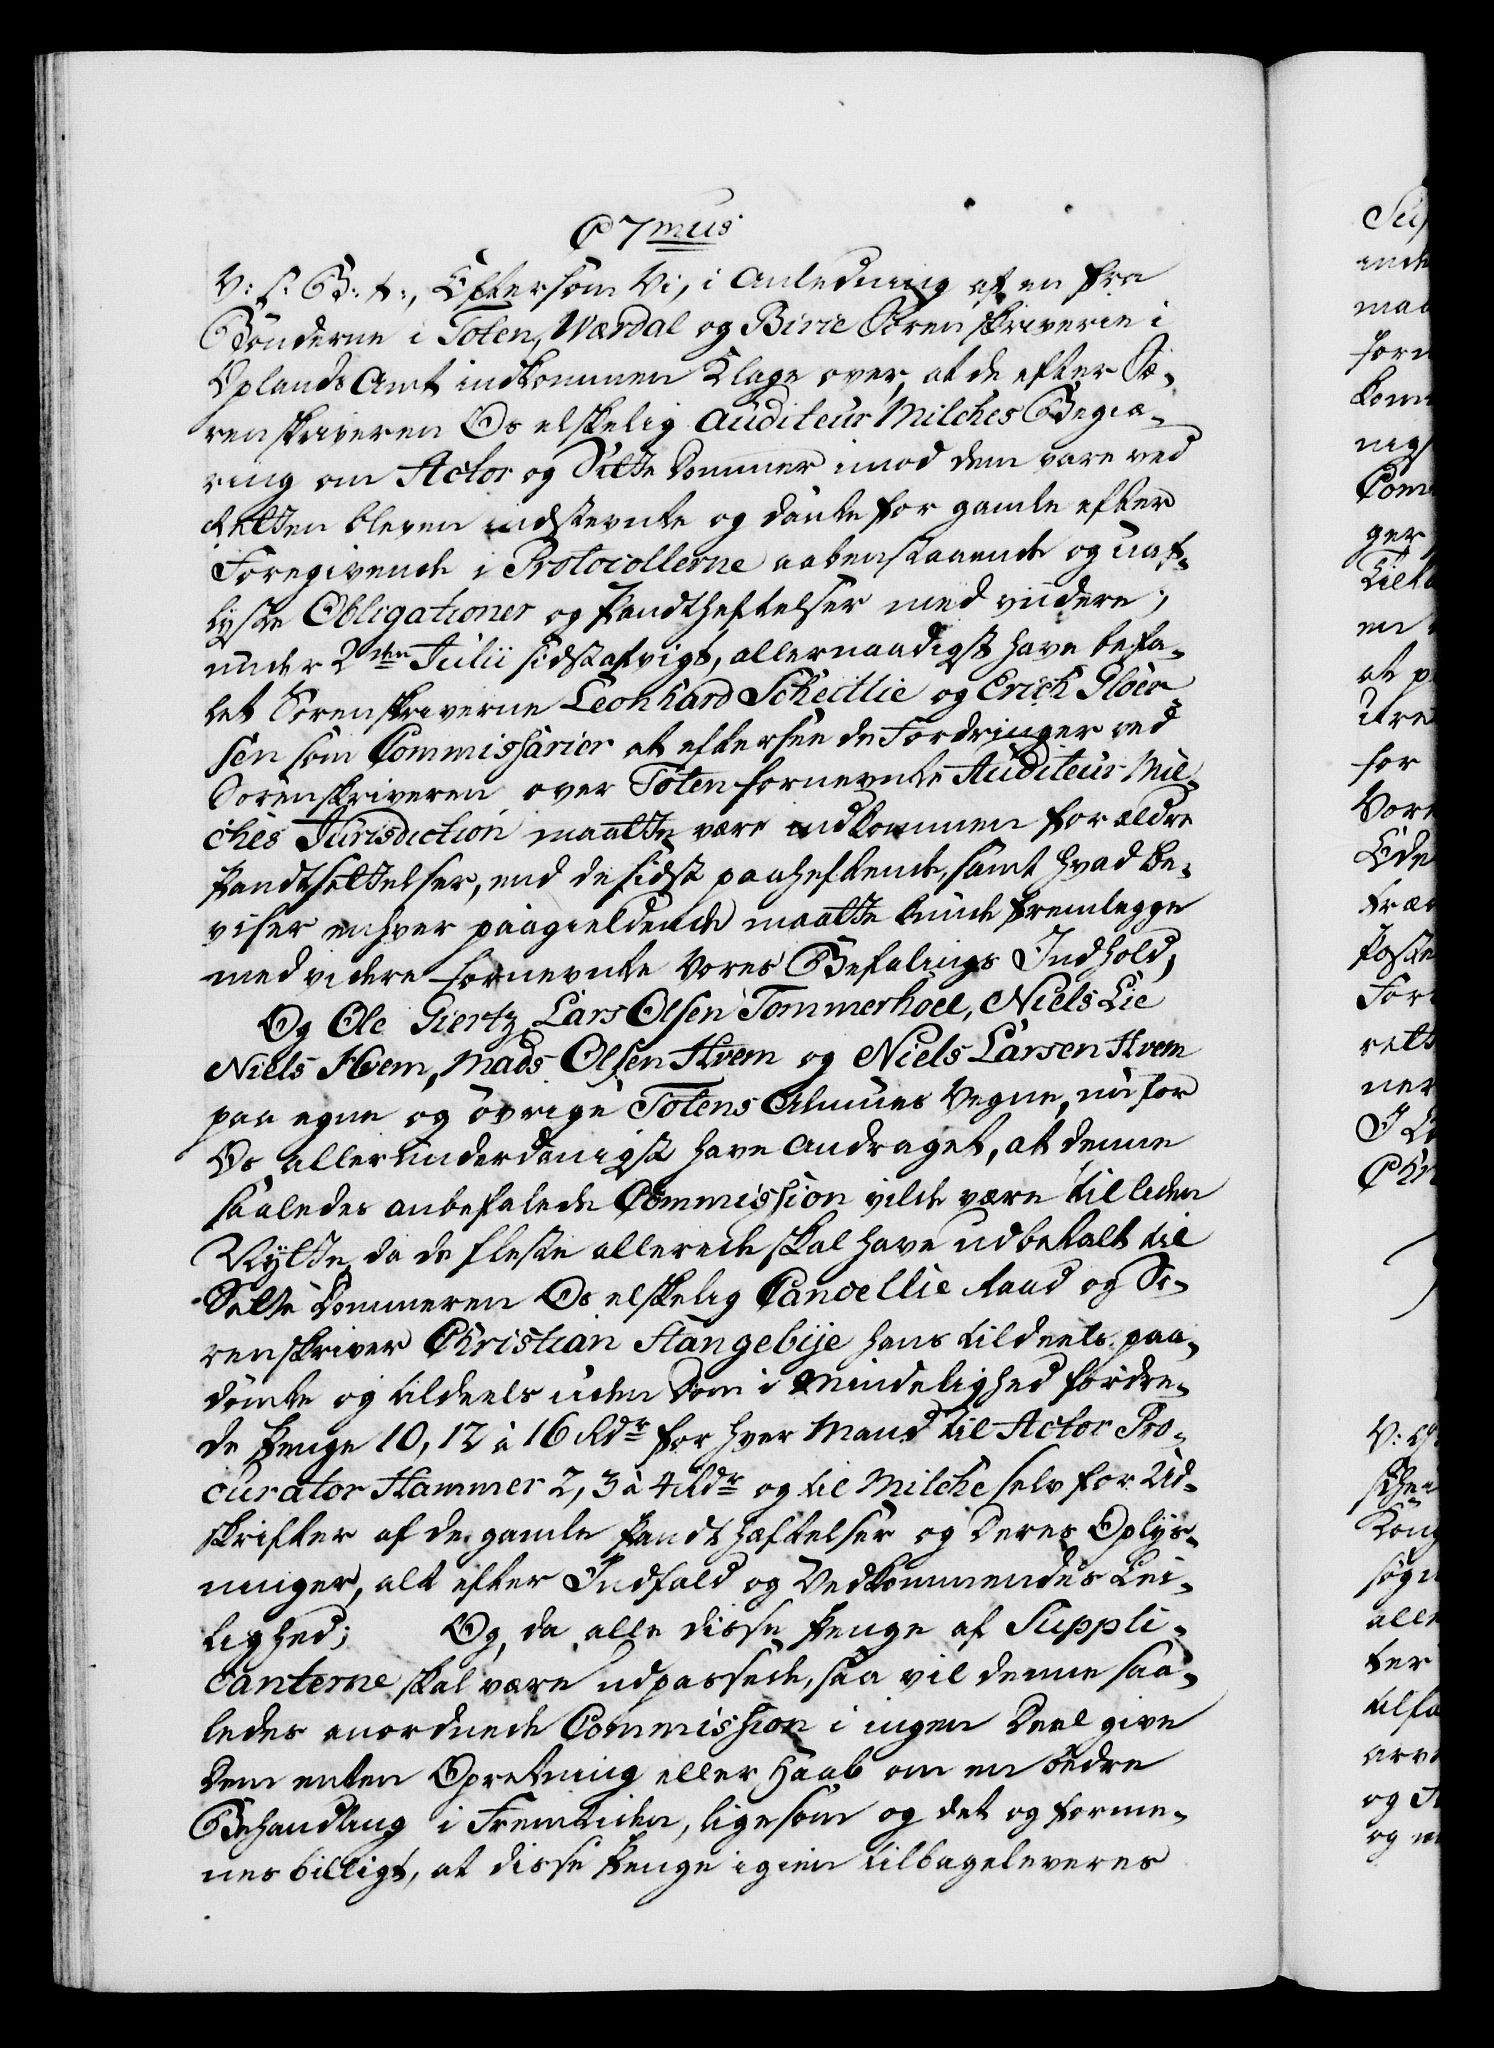 C 7mus
V: S: G: t:, Eftersom Vi, i Anledning af en fra
Bönderne i Toten, Wardal og Birrie Sorenskriverie i
Oplands Amt indkommen Klage over, at de efter So-
renskriveren Os elskelig Auditeur Milches Begiæ-
ring om Actor og Sætte Dommer imod dem vare ved
Retten bleven indstevnte og dömte for gamle efter
Foregivende i Protocollerne aabenstaaende og uaf-
lyste Obligationer og Pandtheftelser med viidere;
under 2den Julii sidstafvigt, allernaadigst have befa-
let Sorenskriverne Leonhard Scheitlie og Erich Gloer-
sen som Commissarier at eftersee de Fordringer ved
Sorenskriveren over Toten fornevnte Auditeur Mil-
ches Jurisdiction maatte være indkommen for ældre
Pandtsættelser, end de sidst paaheftende, samt hvad be-
viser enhver paagieldende maatte kunde fremlegge
med videre fornevnte Vores Befalings Indhold,
Og Ole Giertz, Lars Olsen Tommerhoel, Niels Lie
Niels Hvem, Mads Olsen Hvem og Niels Larsen Hvem
paa egne og övrige Totens Almues Vegne, nu for
Os allerunderdanigst have andraget, at denne
saaledes anbefalede Commission vilde være til liden
Nytte, da de fleste allerede skal have udbetalt til
Sætte Dommeren Os elskelig Cancellie Raad og So-
renskriver Christian Stangebije hans tildeels paa-
dömte og tildeels uden Dom i Mindelighed fordre-
de Penge 10, 12 à 16 Rdr for hver Mand til Actor Pro-
curator Hammer 2, 3 à 4 Rdr og til Milche selv for Ud-
skrifter af de gamle Pandt hæftelser og deres Oplys-
ninger, alt efter Indfald og Vedkommendes Lei-
lighed; Og, da alle disse Penge af Suppli-
canterne skal være udpressede, saa vil denne saa-
ledes anordnede Commission i ingen Deel give
dem enten Opretning eller Haab om en bedre
Behandling i Fremtiden, ligesom og det og forme-
nes billigt, at disse Penge igien tilbageleveres